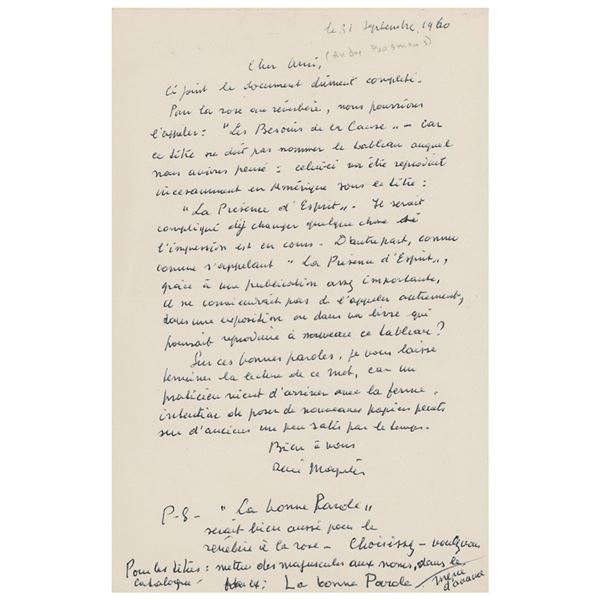 le 31 Septembre 1960
(André Bosmans)
Cher Ami,
Ci joint le document dûment complété.
Pour la rose au réverbère, nous pourrions
l'appeler : "Les Besoins de la Cause" - car
ce titre ne doit pas nommer le tableau auquel
nous avions pensé : celui-ci va être reproduit
incessamment en Amérique sous le titre :
"La Présence d'Esprit". Il serait
compliqué d'y changer quelque chose
l'impression est en cours. D'autre part, connu
comme s'appelant "La Présence d'Esprit",
grâce à une publication assez importante,
il ne conviendrait pas de l'appeler autrement,
dans une exposition ou dans un livre qui
pourrait reproduire à nouveau ce tableau ?
Sur ces bonnes paroles, je vous laisse
terminer la lecture de ce mot, car un
praticien vient d'arriver avec la ferme
intention de poser de nouveaux papiers peints
sur d'anciens un peu salis par le temps.
Bien à vous
René Magritte
P-S - "La bonne Parole"
serait bien aussi pour le
réverbère à la rose - Choisissez - voulez-vous
Pour les titres : mettre des majuscules aux noms, dans le
catalogue - La bonne Parole Merci
d'avance